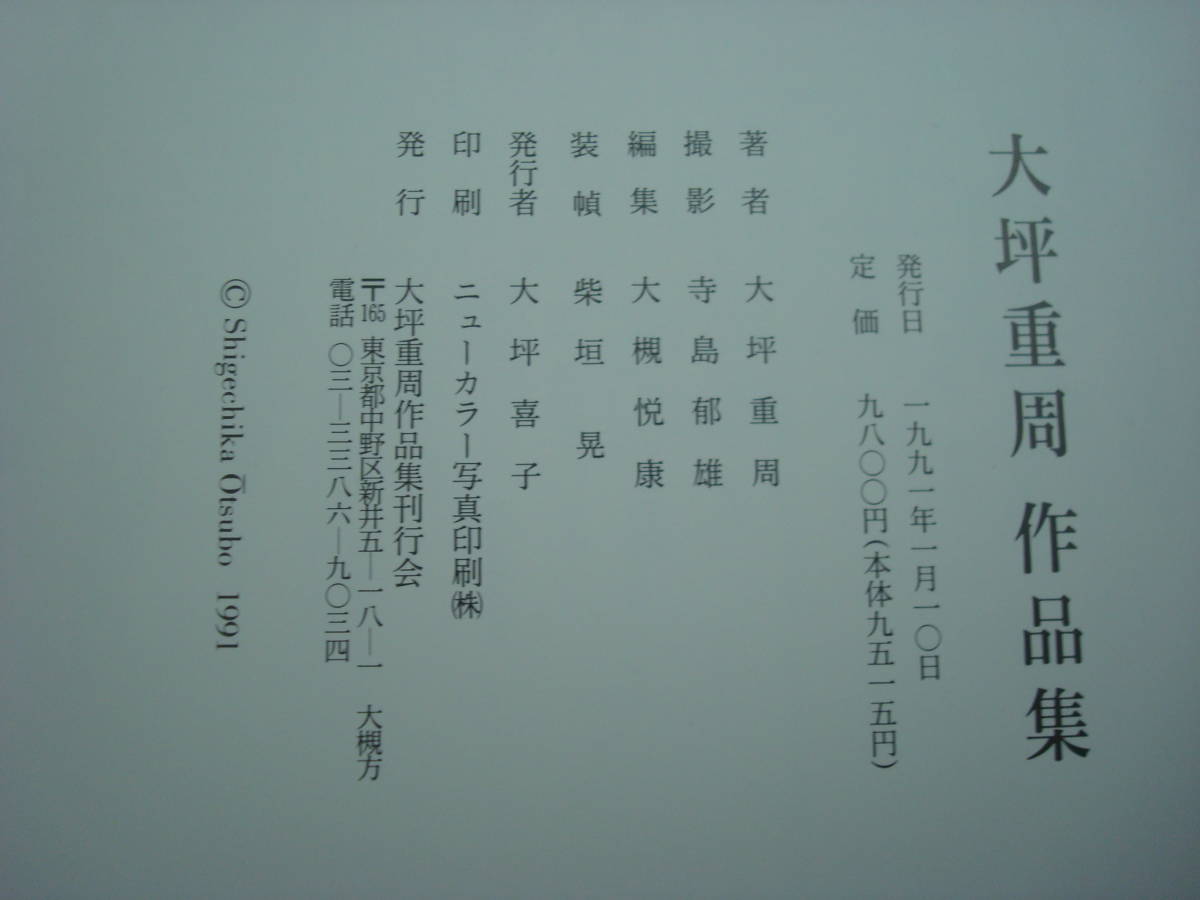 大坪重周 作品集
発行日 一九九一年一月一〇日
定価 九八〇〇円(本体九五一五円)
著者 大坪重周
撮影 寺島郁雄
編集 大槻悦康
装幀 柴垣晃
発行者 大坪喜子
印刷 ニューカラー写真印刷㈱
発行 大坪重周作品集刊行会
〒165 東京都中野区新井五―一八―一 大槻方
電話 〇三―三三八六―九〇三四
© Shigechika Ōtsubo 1991